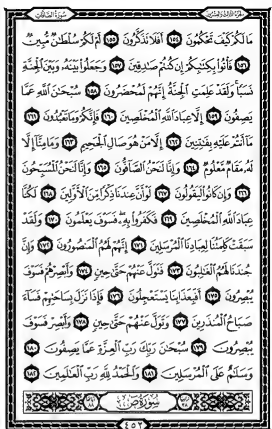 سورة الصافات
الجزء الثالث والعشرون
مَا لَكُمْ كَيْفَ تَحْكُمُونَ ١٥٤ أَفَلَا تَذَكَّرُونَ ١٥٥ أَمْ لَكُمْ سُلْطَانٌ مُّبِينٌ
١٥٦ فَأْتُوا بِكِتَابِكُمْ إِن كُنتُمْ صَادِقِينَ ١٥٧ وَجَعَلُوا بَيْنَهُ وَبَيْنَ الْجِنَّةِ
نَسَبًا وَلَقَدْ عَلِمَتِ الْجِنَّةُ إِنَّهُمْ لَمُحْضَرُونَ ١٥٨ سُبْحَانَ اللَّهِ عَمَّا
يَصِفُونَ ١٥٩ إِلَّا عِبَادَ اللَّهِ الْمُخْلَصِينَ ١٦٠ فَإِنَّكُمْ وَمَا تَعْبُدُونَ ١٦١
مَا أَنتُمْ عَلَيْهِ بِفَاتِنِينَ ١٦٢ إِلَّا مَنْ هُوَ صَالِ الْجَحِيمِ ١٦٣ وَمَا مِنَّا إِلَّا
لَهُ مَقَامٌ مَّعْلُومٌ ١٦٤ وَإِنَّا لَنَحْنُ الصَّافُّونَ ١٦٥ وَإِنَّا لَنَحْنُ الْمُسَبِّحُونَ
١٦٦ وَإِن كَانُوا لَيَقُولُونَ ١٦٧ لَوْ أَنَّ عِندَنَا ذِكْرًا مِّنَ الْأَوَّلِينَ ١٦٨ لَكُنَّا
عِبَادَ اللَّهِ الْمُخْلَصِينَ ١٦٩ فَكَفَرُوا بِهِ فَسَوْفَ يَعْلَمُونَ ١٧٠ وَلَقَدْ
سَبَقَتْ كَلِمَتُنَا لِعِبَادِنَا الْمُرْسَلِينَ ١٧١ إِنَّهُمْ لَهُمُ الْمَنصُورُونَ ١٧٢ وَإِنَّ
جُندَنَا لَهُمُ الْغَالِبُونَ ١٧٣ فَتَوَلَّ عَنْهُمْ حَتَّىٰ حِينٍ ١٧٤ وَأَبْصِرْهُمْ فَسَوْفَ
يُبْصِرُونَ ١٧٥ أَفَبِعَذَابِنَا يَسْتَعْجِلُونَ ١٧٦ فَإِذَا نَزَلَ بِسَاحَتِهِمْ فَسَاءَ
صَبَاحُ الْمُنذَرِينَ ١٧٧ وَتَوَلَّ عَنْهُمْ حَتَّىٰ حِينٍ ١٧٨ وَأَبْصِرْ فَسَوْفَ
يُبْصِرُونَ ١٧٩ سُبْحَانَ رَبِّكَ رَبِّ الْعِزَّةِ عَمَّا يَصِفُونَ ١٨٠
وَسَلَامٌ عَلَى الْمُرْسَلِينَ ١٨١ وَالْحَمْدُ لِلَّهِ رَبِّ الْعَالَمِينَ ١٨٢
سُورَةُ ص
٤٥٢